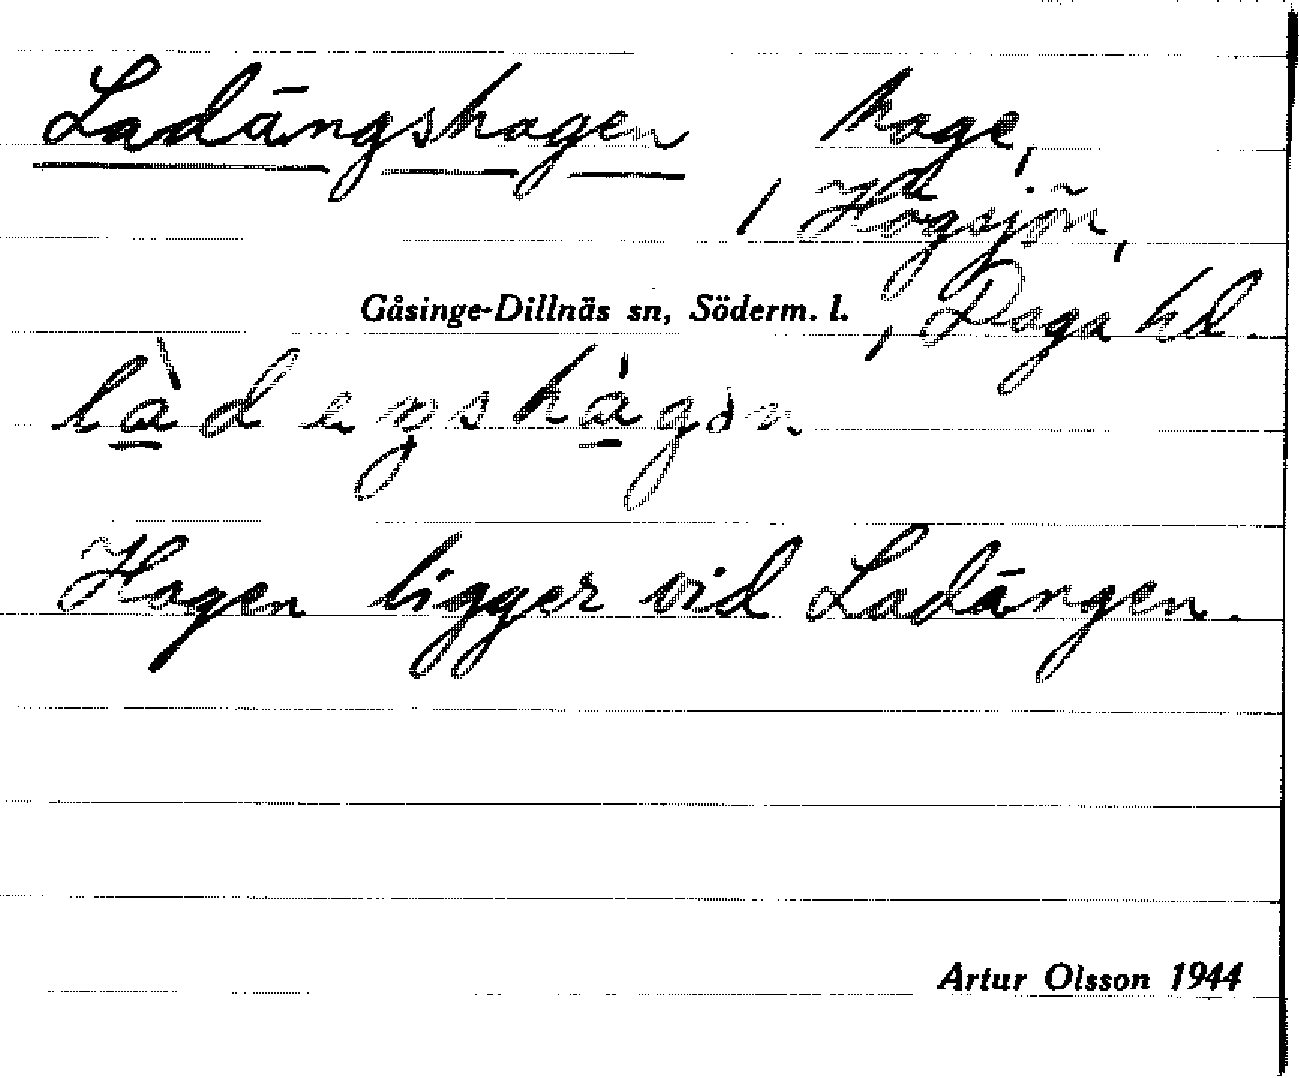 Ladängshagen hage,
/ Högsjön,
Gåsinge-Dillnäs sn, Söderm. l. , Daga hd.
làdeŋshágən
Hagen ligger vid Ladängen.
Artur Olsson 1944